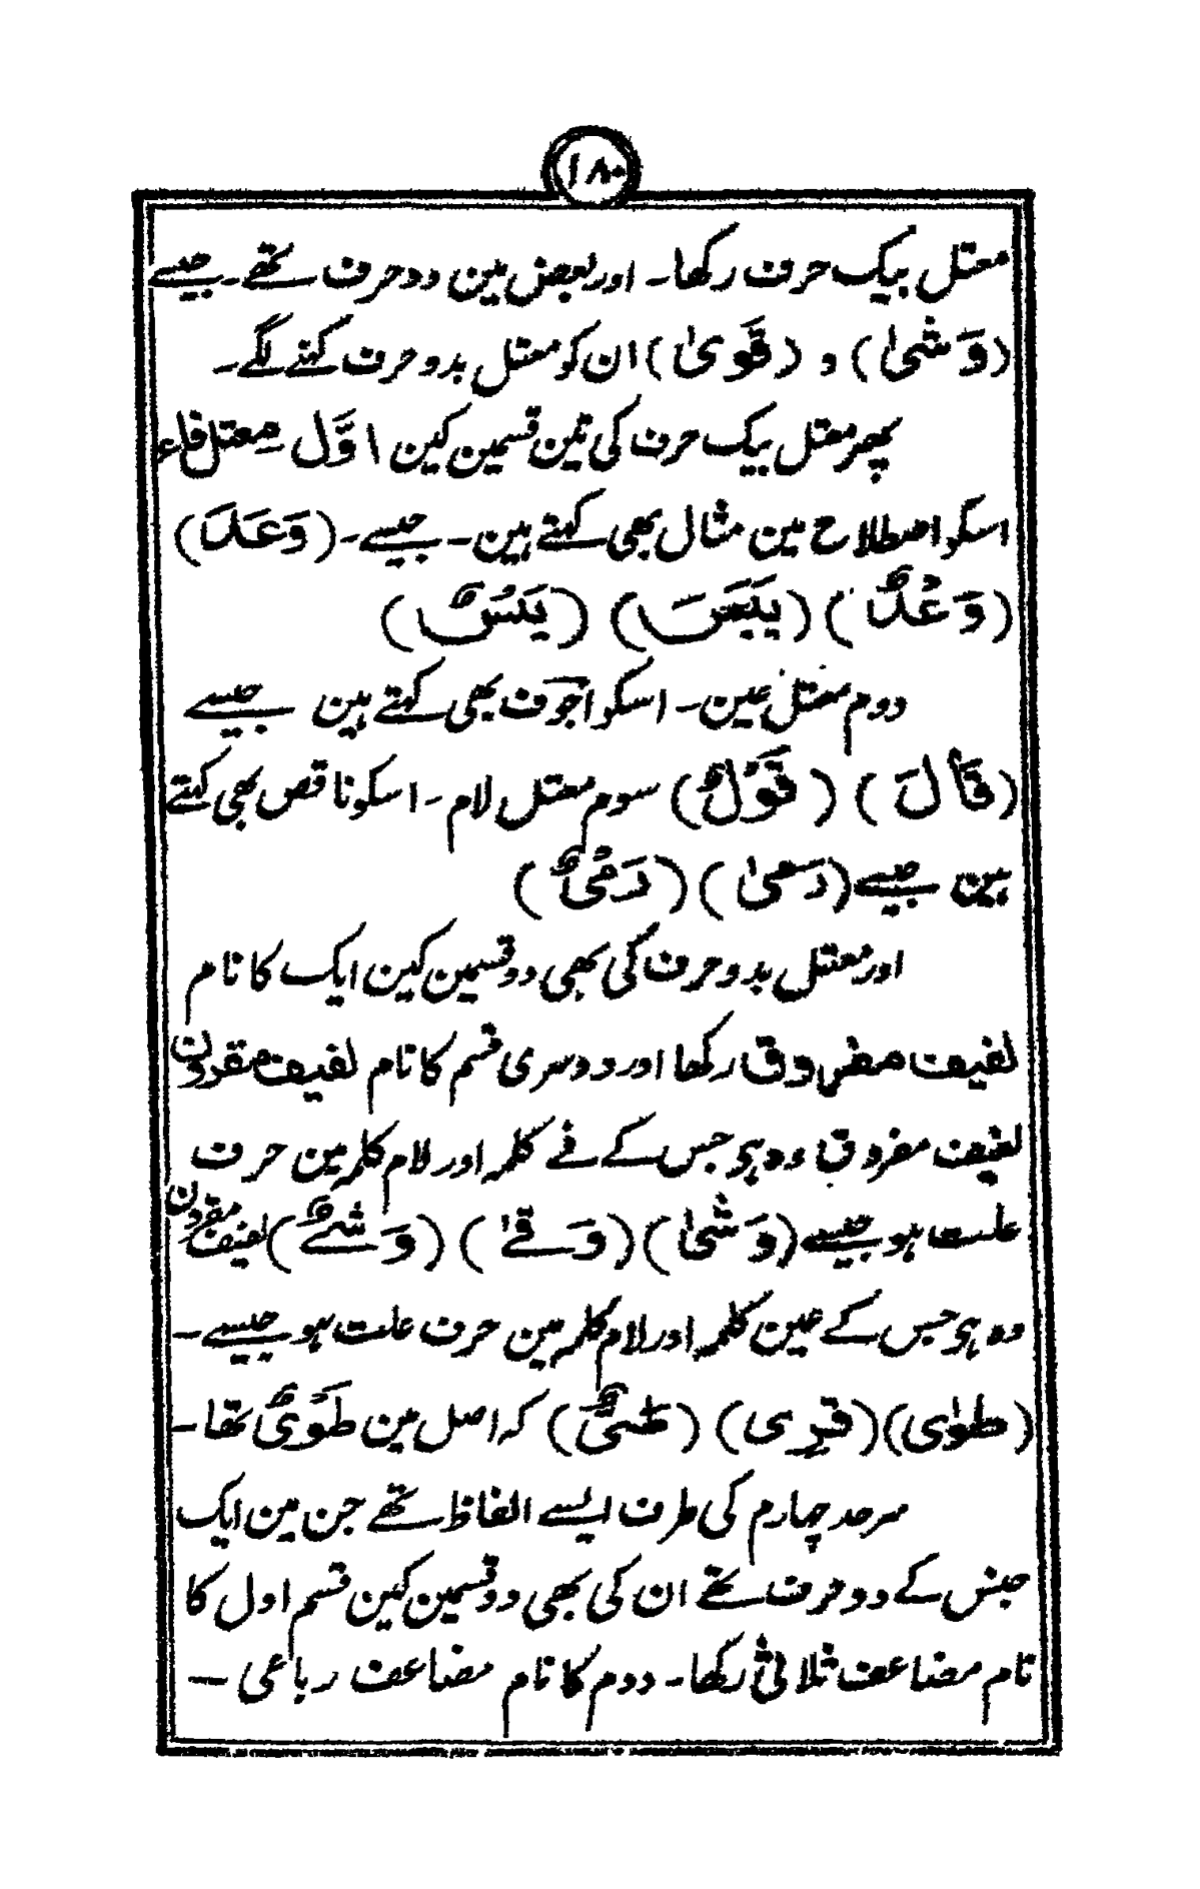 ۱۸۰
معتل بیک حرف رکھا۔ اور بعض مین دو حرف تھے۔ جیسے
(وَشیٰ) و (قَویٰ) ان کو معتل بدو حرف کہنے لگے۔
پھر معتل بیک حرف کی تین قسمین کین اوَّل معتل فاء
اسکو اصطلاح مین مثال بھی کہتے ہین۔ جیسے۔ (وَعَدَ)
(وَعْدٌ) (یَبَسَ) (یَبْسٌ)
دوم معتل عین۔ اسکو اجوَف بھی کہتے ہین جیسے
(قَالَ) (قَوْلٌ) سوم معتل لام۔ اسکو ناقص بھی کہتے
ہین جیسے (رَمیٰ) (رَمْیٌ)
اور معتل بدو حرف کی بھی دو قسمین کین ایک کا نام
لفیف مفروق رکھا اور دوسری قسم کا نام لفیف مقرون
لفیف مفروق وہ ہی جس کے فے کلمہ اور لام کلمہ مین حرف
علت ہو جیسے (وَشیٰ) (وَقےٰ) (وَشےٌ) لفیف مقرون
وہ ہی جس کے عین کلمہ اور لام کلمہ مین حرف علت ہو جیسے۔
(طوٰی) (قَوِی) (طَیٌّ) کہ اصل مین طَوْیٌ تھا۔
سرحد چہارم کی طرف ایسے الفاظ تھے جن مین ایک
جنس کے دو حرف تھے ان کی بھی دو قسمین کین قسم اول کا
نام مضاعف ثلاثی رکھا۔ دوم کا نام مضاعف رباعی ۔